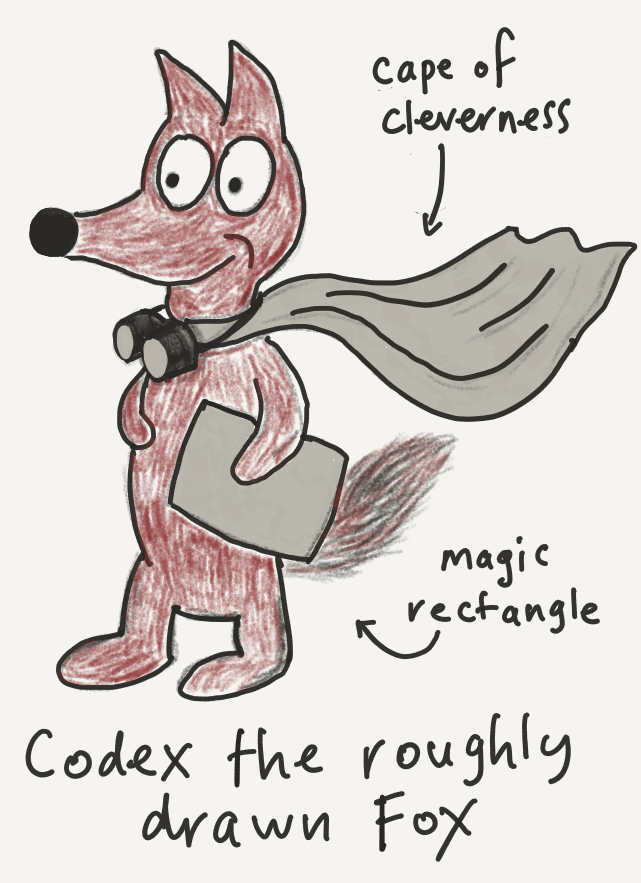 cape of
cleverness
magic
rectangle
Codex the roughly
drawn Fox